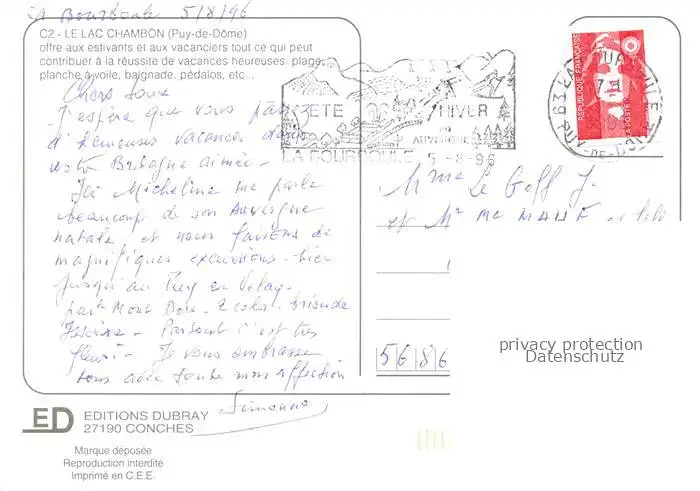 La Bourboule 5/8/96
C2 - LE LAC CHAMBON (Puy-de-Dôme)
offre aux estivants et aux vacanciers tout ce qui peut
contribuer à la réussite de vacances heureuses: plage,
planche à voile, baignade, pédalos, etc...
Chers tous
J'espère que vous passez
d'heureuses vacances dans
votre Bretagne aimée -
Ici Micheline me parle
beaucoup de son Auvergne
natale et nous faisons de
magnifiques excursions - hier
jusqu'au Puy en Velay -
par Mont Dore -
Issoire - Partout c'est très
fleuri - Je vous embrasse
tous avec toute mon affection
Simonne
ED EDITIONS DUBRAY
27190 CONCHES
Marque déposée
Reproduction interdite
Imprimé en C.E.E.
ETE HIVER
EN
AUVERGNE
LA BOURBOULE 5-8-96
REPUBLIQUE FRANÇAISE
LA POSTE
63 LA BOURBOULE
PUY-DE-DOME
Mme Le Goff J.
et Mr Me
5686
privacy protection
Datenschutz